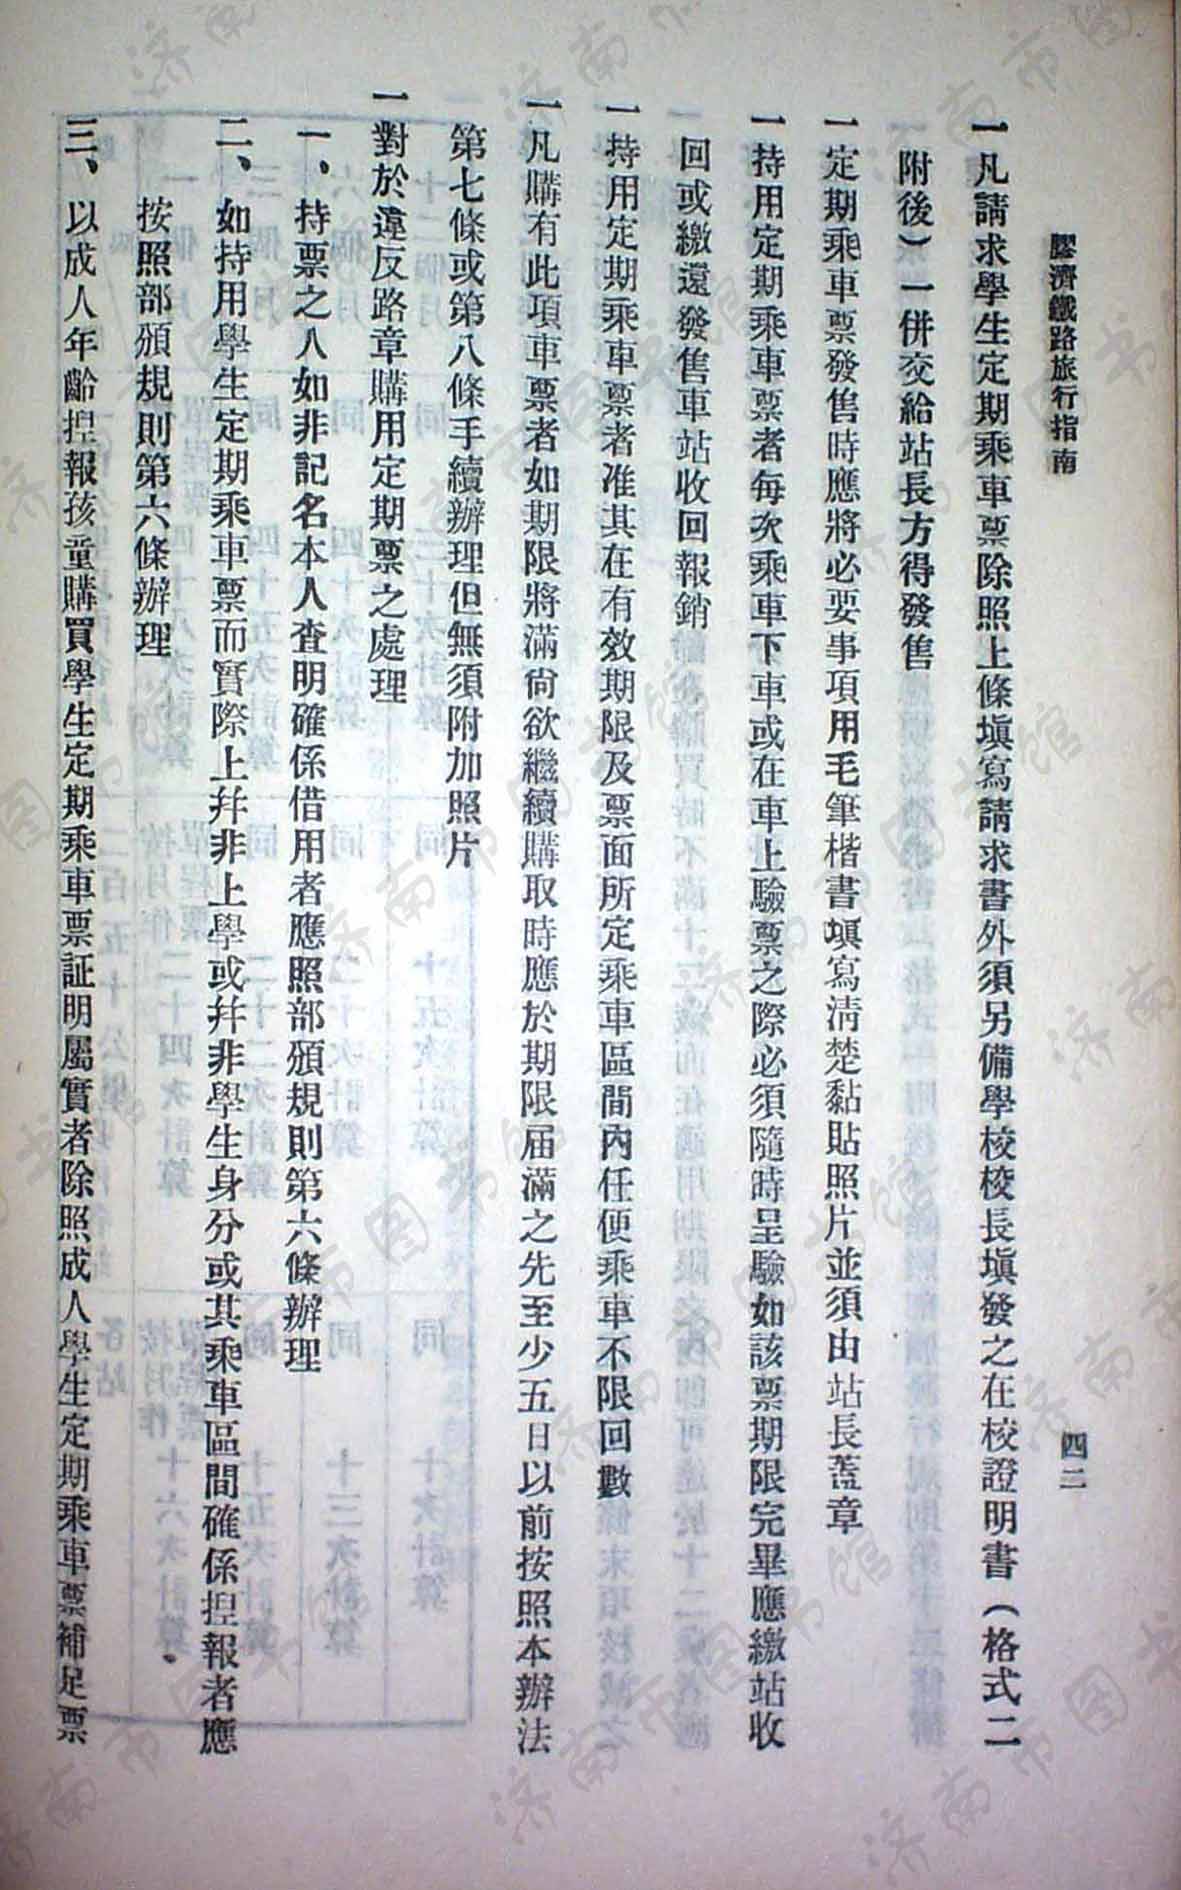 膠濟鐵路旅行指南
四二
一凡請求學生定期乘車票除照上條塡寫請求書外須另備學校校長塡發之在校證明書（格式二
附後）一併交給站長方得發售
一定期乘車票發售時應將必要事項用毛筆楷書塡寫淸楚黏貼照片並須由站長蓋章
一持用定期乘車票者每次乘車下車或在車上驗票之際必須隨時呈驗如該票期限完畢應繳站收
回或繳還發售車站收回報銷
一持用定期乘車票者准其在有效期限及票面所定乘車區間內任便乘車不限回數
一凡購有此項車票者如期限將滿尙欲繼續購取時應於期限届滿之先至少五日以前按照本辦法
第七條或第八條手續辦理但無須附加照片
一對於違反路章購用定期票之處理
一、持票之人如非記名本人查明確係借用者應照部頒規則第六條辦理
二、如持用學生定期乘車票而實際上幷非上學或幷非學生身分或其乘車區間確係揑報者應
按照部頒規則第六條辦理
三、以成人年齡揑報孩童購買學生定期乘車票証明屬實者除照成人學生定期乘車票補足票
济南市图书馆